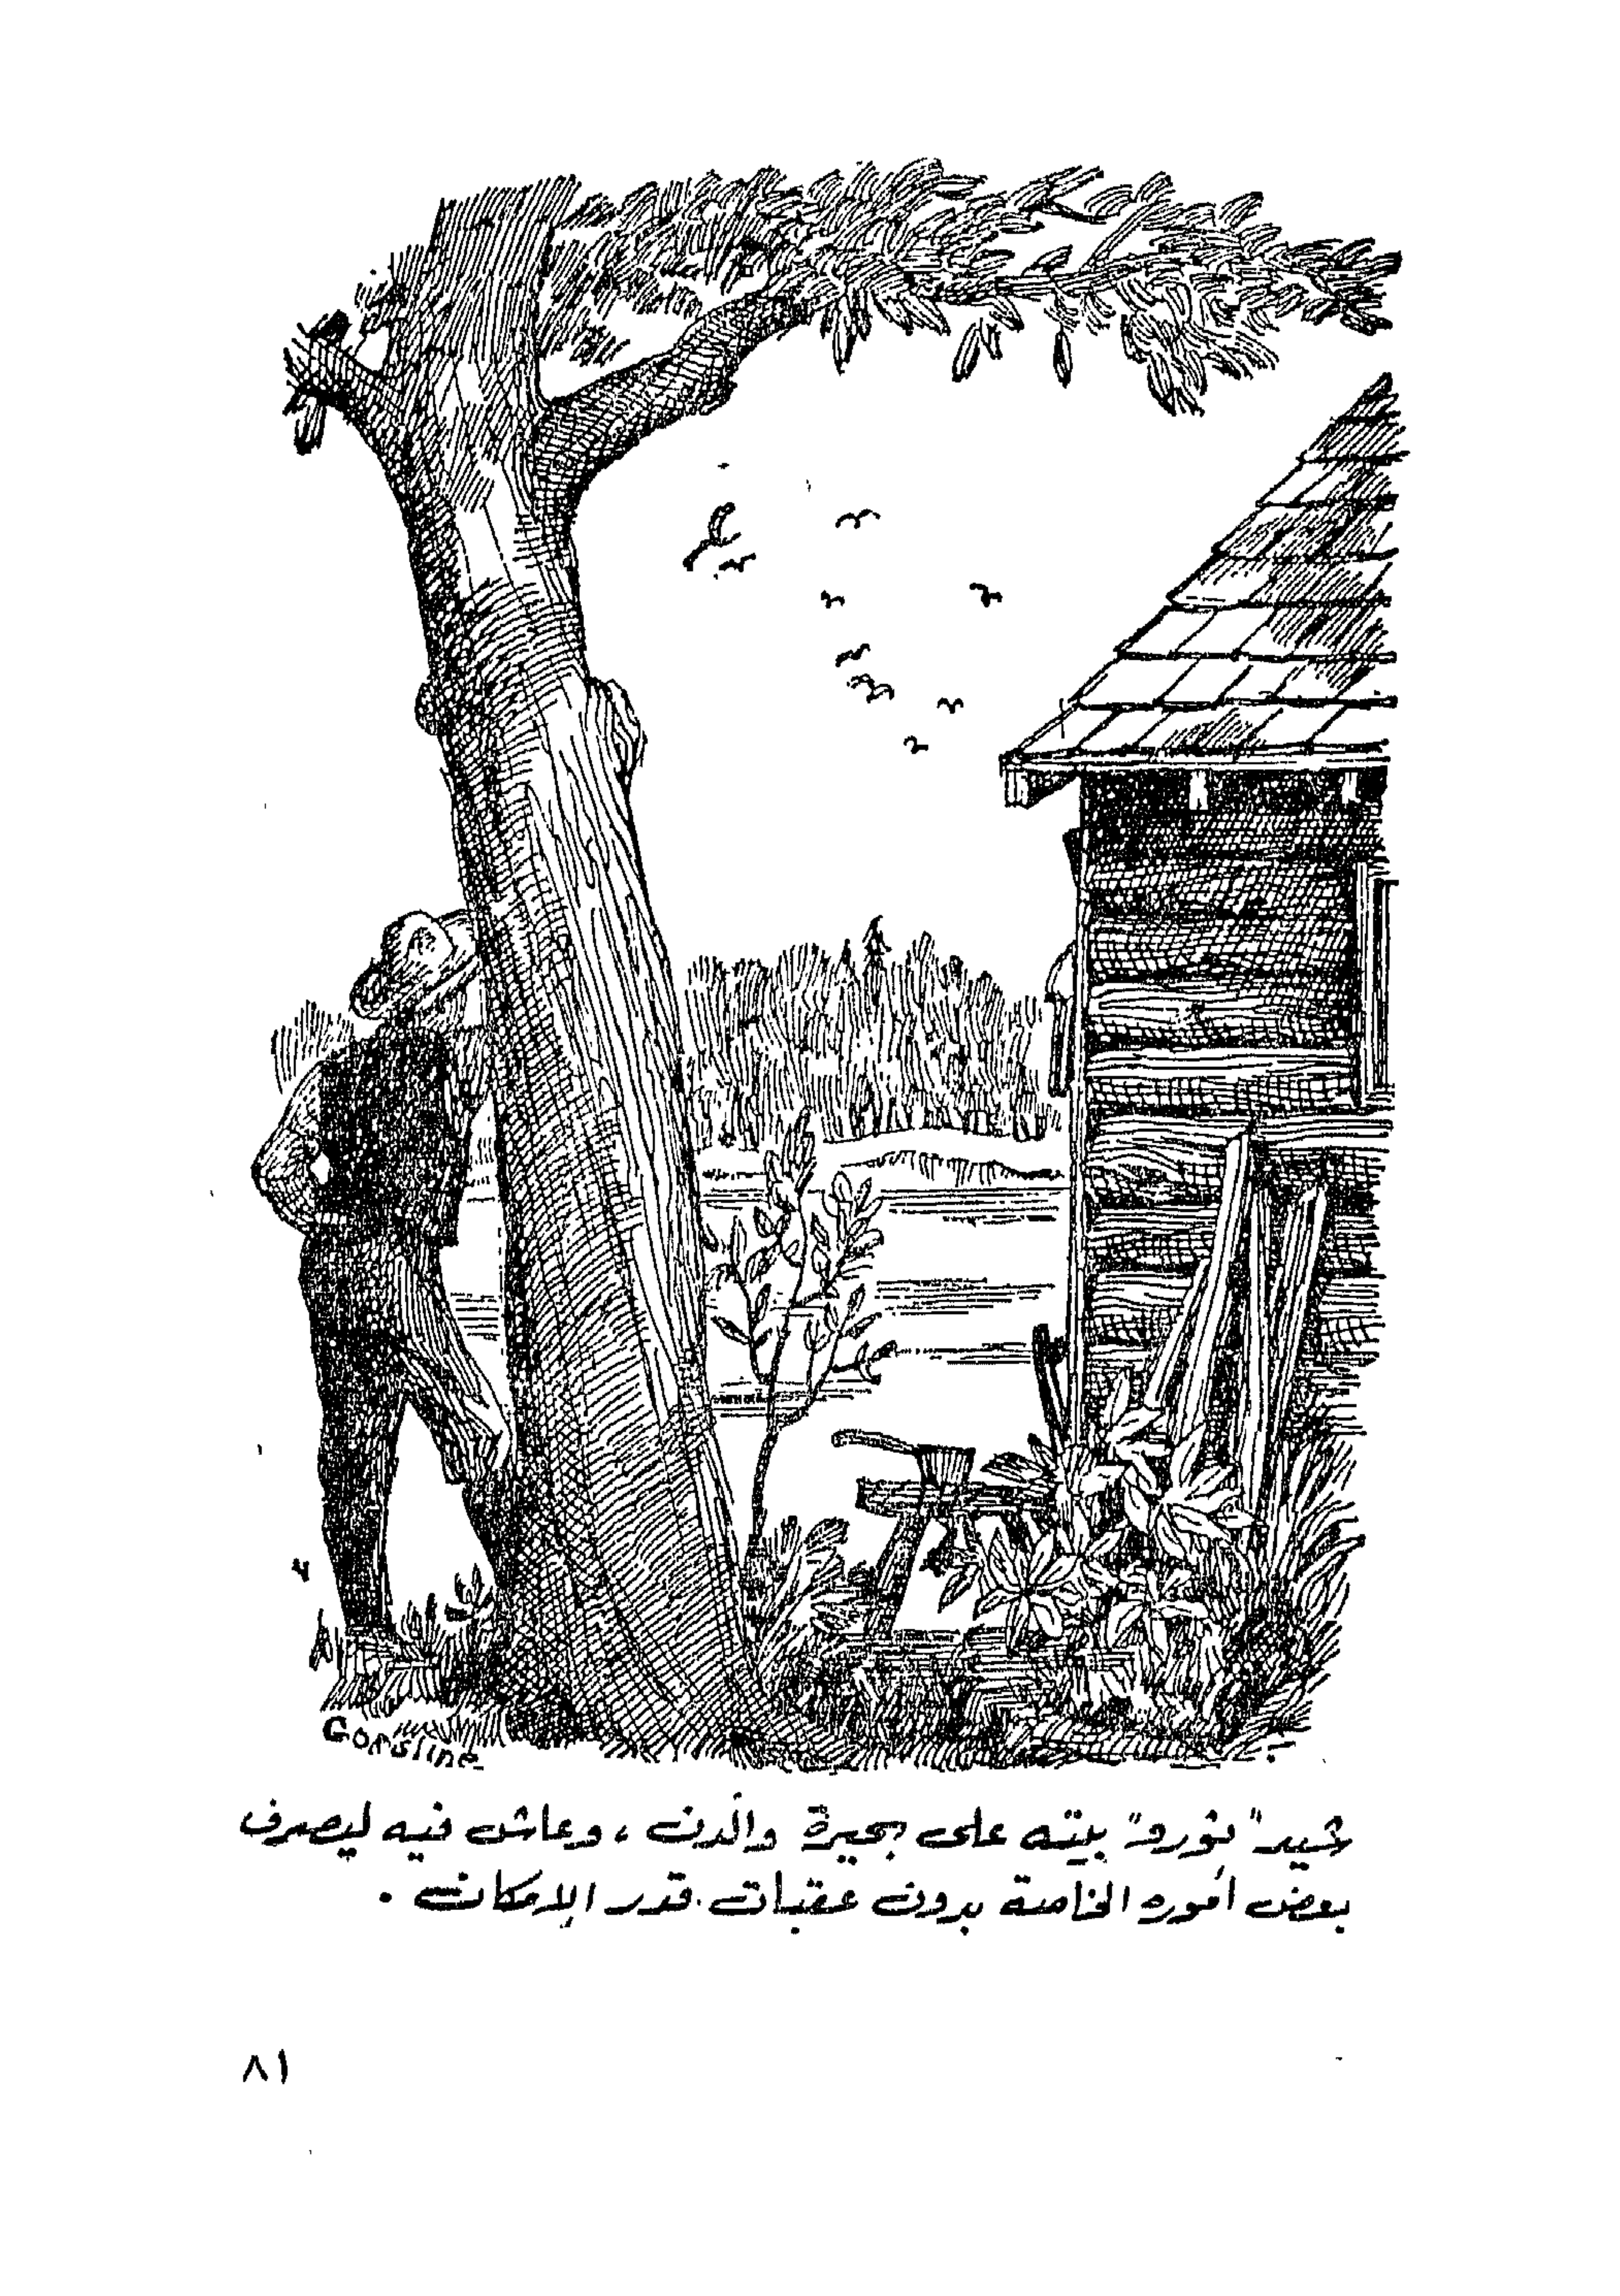 Gorsline
شيد "ثورو" بيته على بحيرة والدن، وعاش فيه ليصرف
بعض أموره الخاصة بدون عقبات قدر الإمكان.
٨١